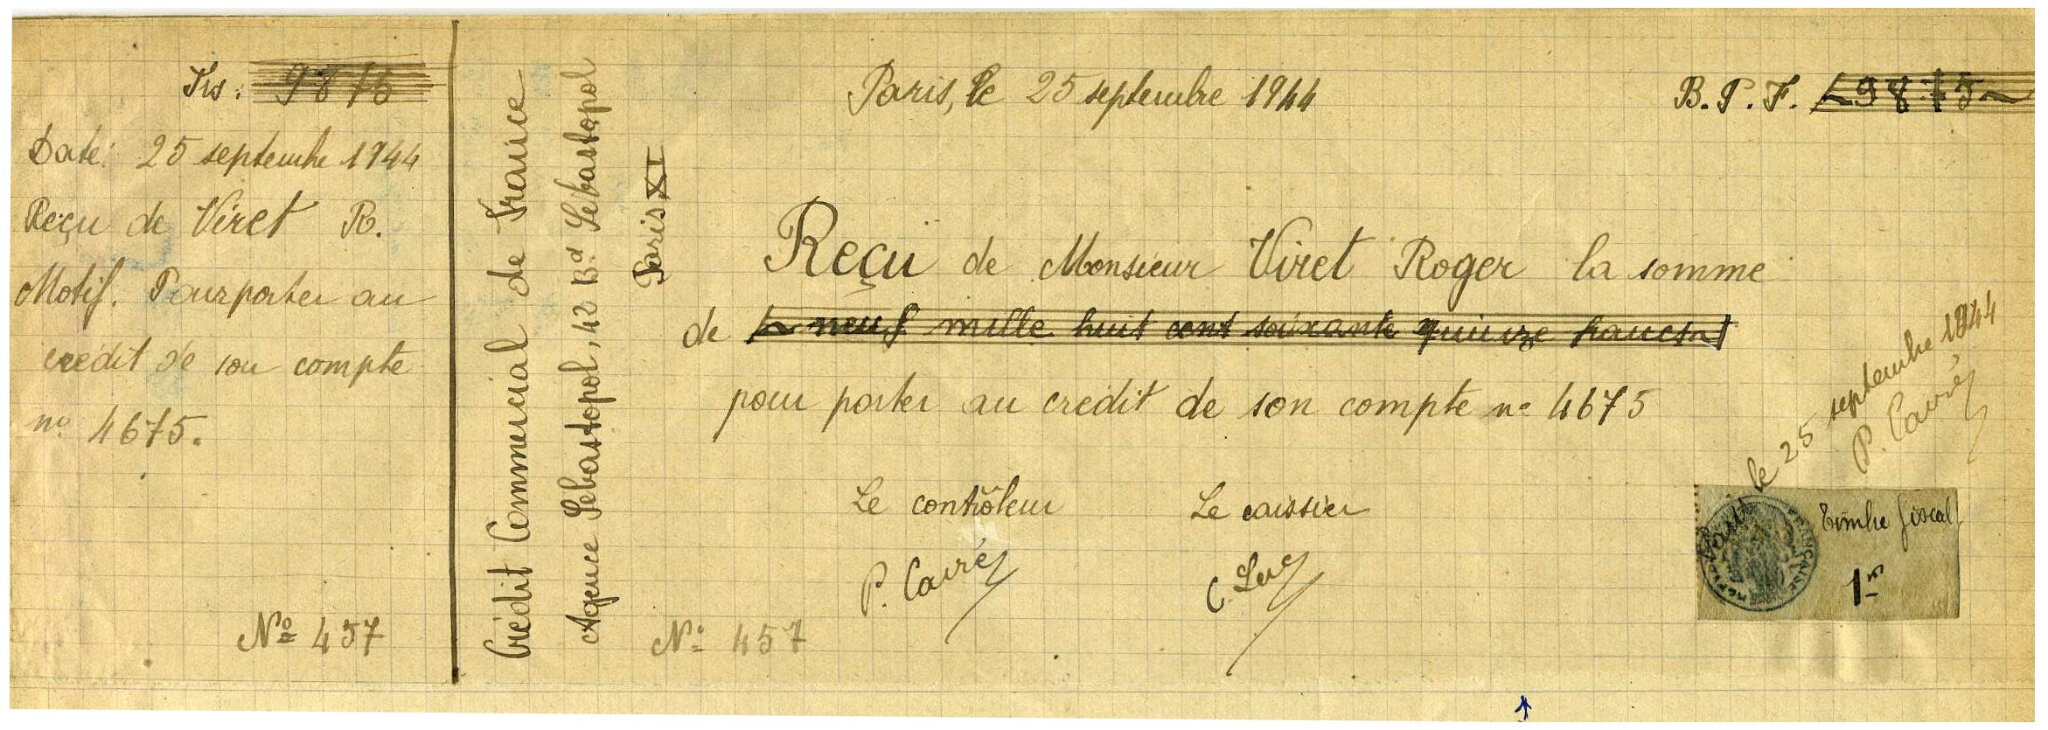 Frs : 9875
Date : 25 septembre 1944
Reçu de Viret R.
Motif. Pour porter au
crédit de son compte
nº 4675.
Nº 457
Crédit Commercial de France
Agence Sébastopol, 42 Bd Sébastopol
Paris XI
Paris, le 25 septembre 1944
B.P.F. 9875
Reçu de Monsieur Viret Roger la somme
de neuf mille huit cent soixante quinze francs
pour porter au crédit de son compte nº 4675
Le contrôleur Le caissier
P. Cavré C. Luc
Nº 457
Paris le 25 septembre 1944
P. Cavré
Timbre fiscal
1 fr
FRANÇAISE